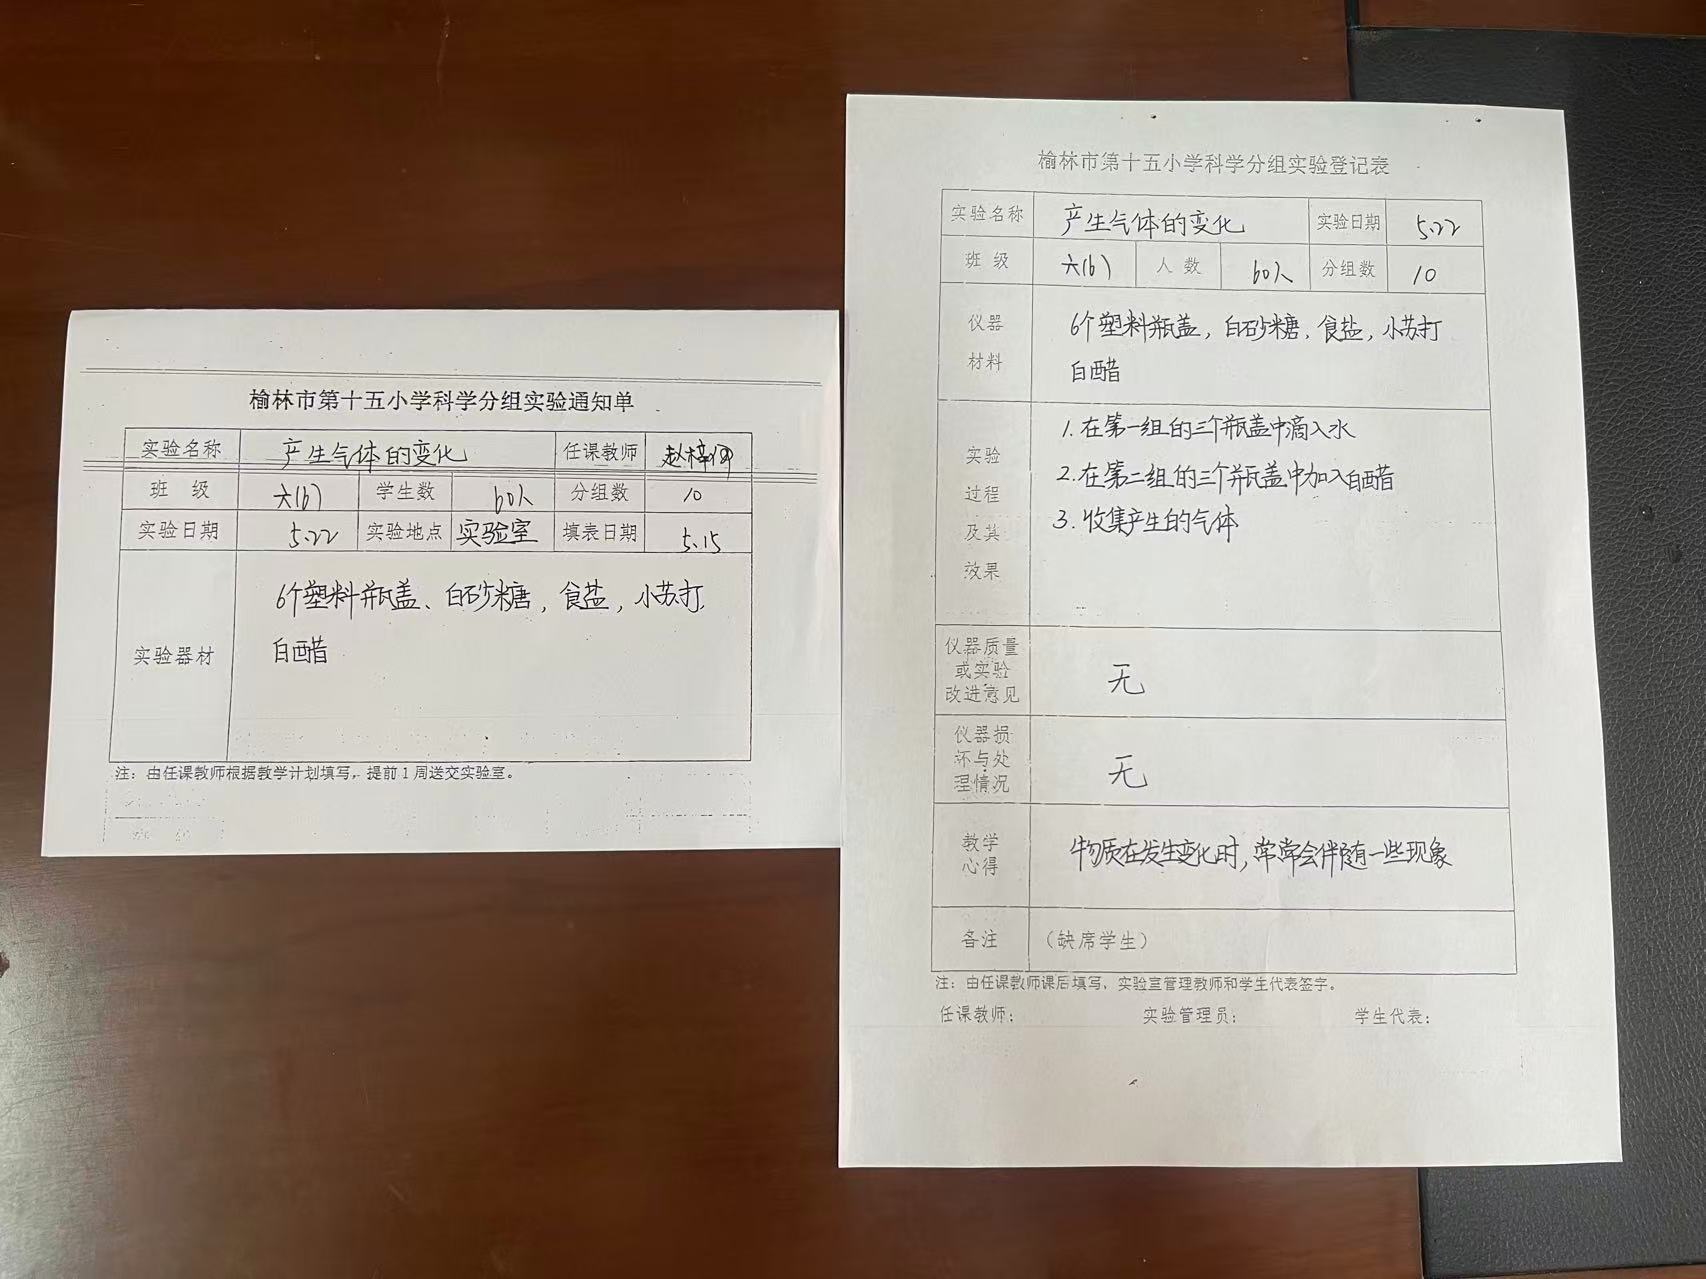 榆林市第十五小学科学分组实验通知单
实验名称 产生气体的变化 任课教师
班 级 六(6) 学生数 60人 分组数 10
实验日期 5.22 实验地点 实验室 填表日期 5.15
实验器材
6个塑料瓶盖、白砂糖，食盐，小苏打，
白醋
注：由任课教师根据教学计划填写，提前1周送交实验室。
榆林市第十五小学科学分组实验登记表
实验名称 产生气体的变化 实验日期 5.22
班 级 六(6) 人 数 60人 分组数 10
仪器
材料
6个塑料瓶盖，白砂糖，食盐，小苏打
白醋
实验
过程
及其
效果
1.在第一组的三个瓶盖中滴入水
2.在第二组的三个瓶盖中加入白醋
3.收集产生的气体
仪器质量
或实验
改进意见
无
仪器损
坏与处
理情况
无
教学
心得
物质在发生变化时，常常会伴随一些现象
备注 （缺席学生）
注：由任课教师课后填写，实验室管理教师和学生代表签字。
任课教师： 实验管理员： 学生代表：